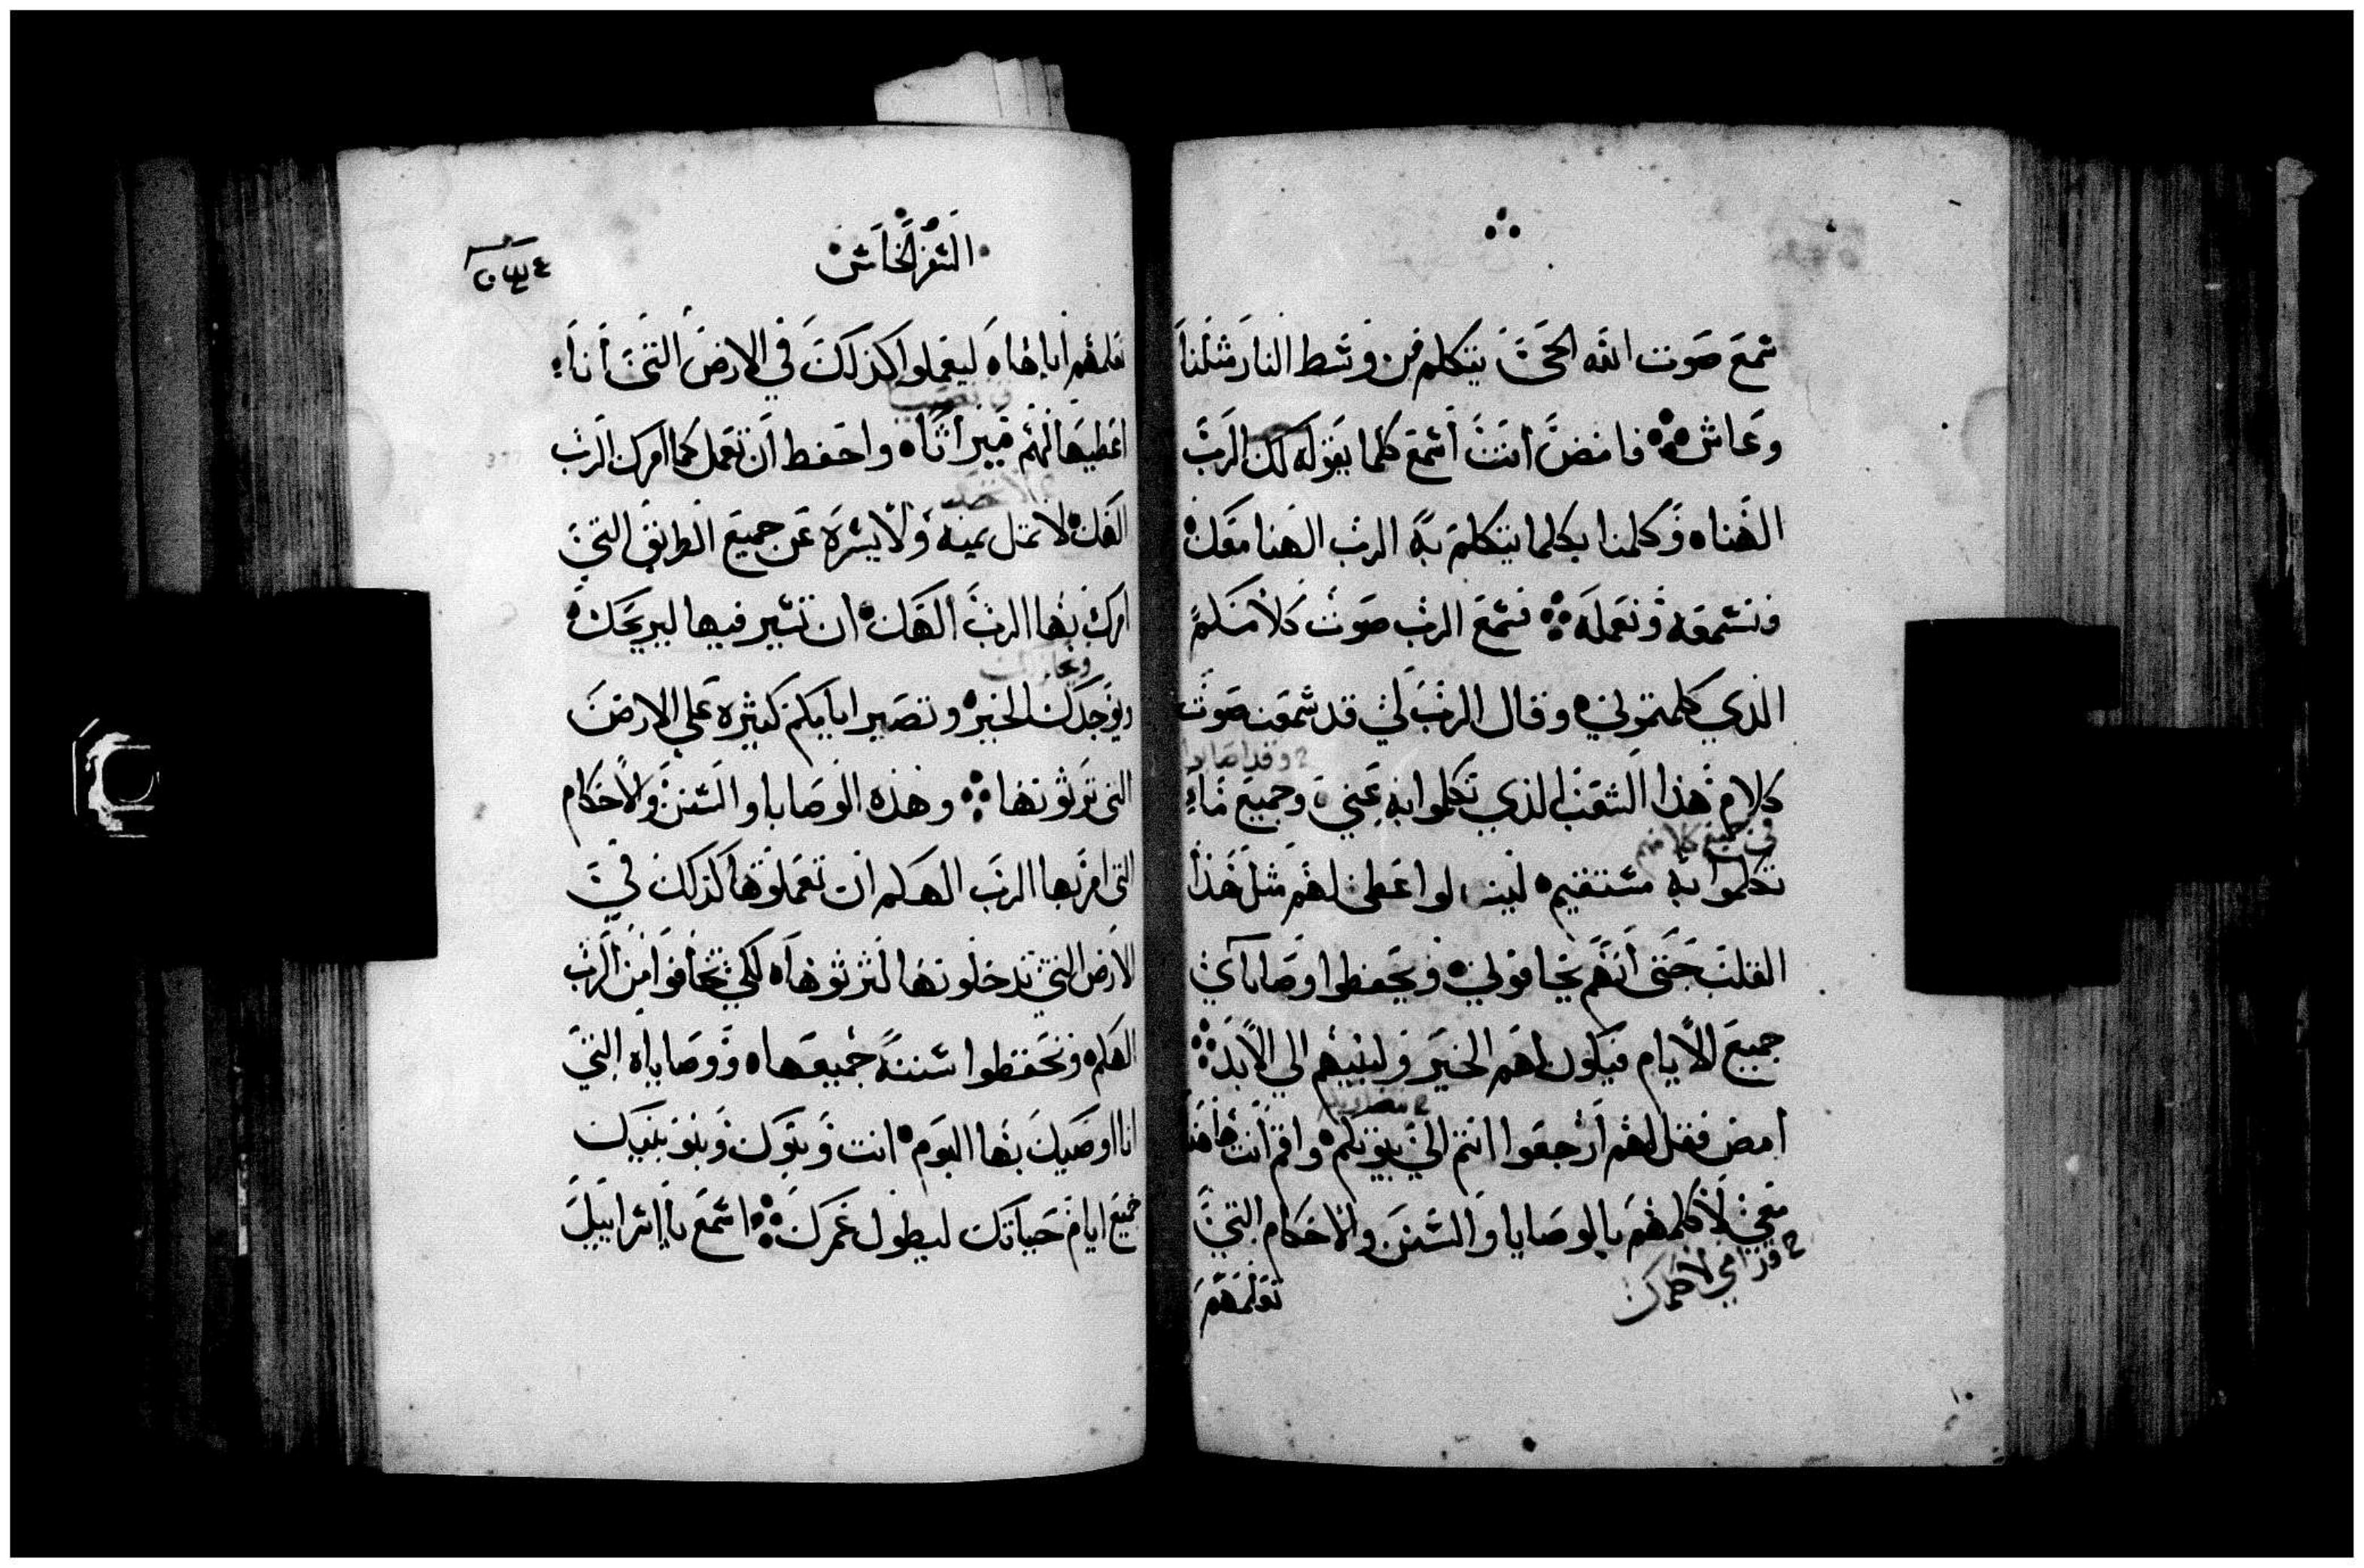 سمع صوت الله الحي يتكلم من وسط النار مثلنا
وعاش ܀ فامض انت أسمع كلما يقوله لك الرب
الهنا ه وكلمنا بكلما يتكلم به الرب الهنا معك ه
ونسمعه ونعمله ܀ فسمع الرب صوت كلامكم
الذي كلمتموني ه وقال الرب لي قد سمعت صوت
كلام هذا الشعب الذي تكلموا به عني وجميع ما
في جميع كلامهم
تكلموا به مستقيم ه لو اعطى لهم مثل هذا
القلب حتى أنهم يخافوني ه ويحفظوا وصاياي
جميع الأيام فيكون لهم الخير ولبنيهم الي الأبد ܀
أمض فقل لهم أرجعوا انتم الي بيوتكم ه واقم أنت هاهنا
معي لأكلمهم بالوصايا والسنن والاحكام التي
تعلمهم
السفر الخامس
تعلمهم اياها ه ليعملوا كذلك في الارض التي أنا
اعطيها لهم ميراثا ه واحفظ أن تعمل كما امرك الرب
الهك ه لا تمل يمينه ولا يسره عن جميع الطرايق التي
امرك بها الرب الهك ه ان تسير فيها ليريحك ه
ويوجدك الخير ه وتصير ايامكم كثيره على الارض
التي ترثونها ܀ وهذه الوصايا والسنن والأحكام
التي امر بها الرب الهكم ان تعملوها كذلك في
الارض التي تدخلونها لترثوها ه لكي تخافوا من الرب
الهكم ه وتحفظوا سننه جميعها ه ووصاياه التي
انا اوصيك بها اليوم ه انت وبنوك وبنو بنيك
جميع ايام حياتك ليطول عمرك ܀ اسمع يا إسراييل